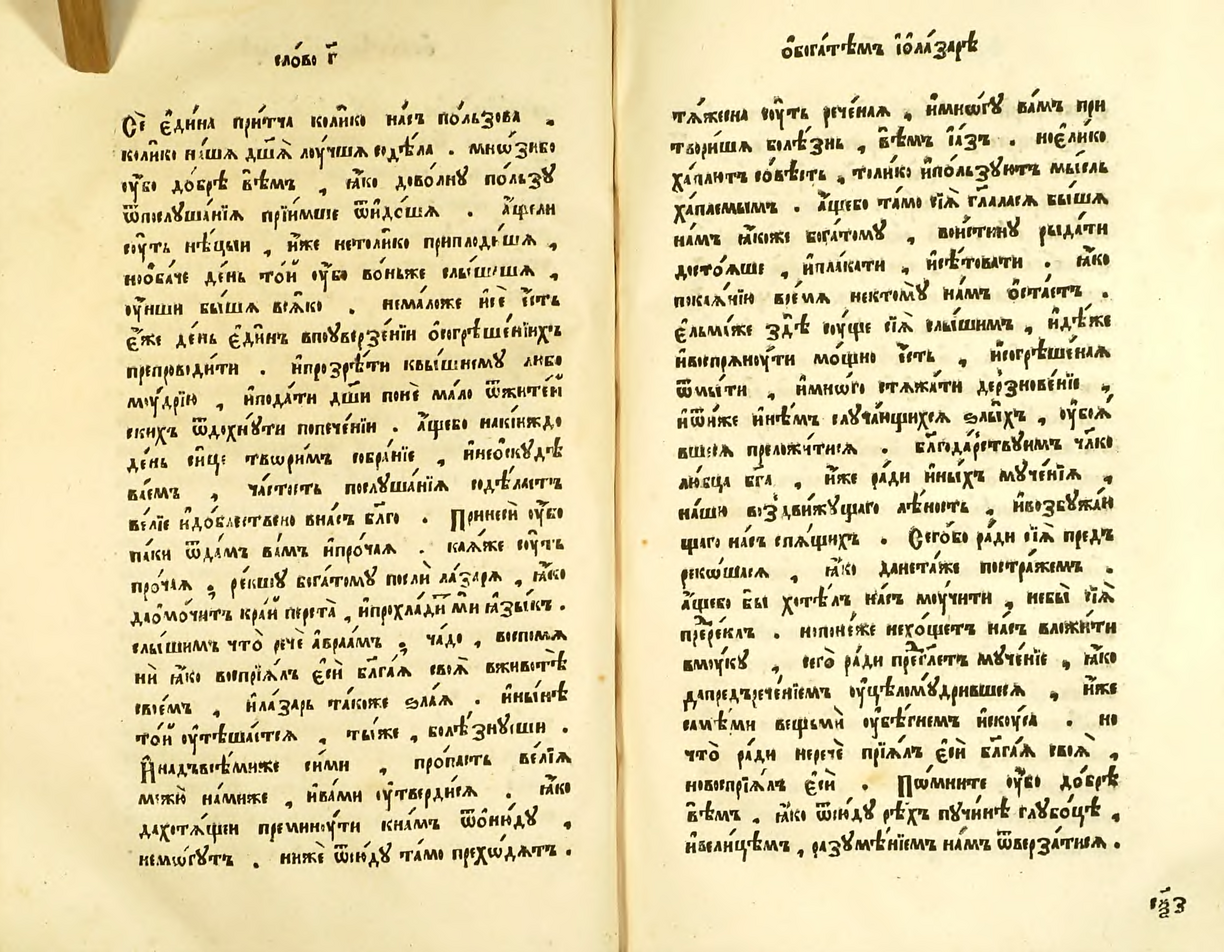 сло́во г҃
Сѐ є҆ди́на при́тча коли́ко на́съ по́льзова .
коли́ко на́шѧ дш҃ѧ̀ лоу́чшѧ содѣ́ла . мнѡ́зибо
ᲂу҆́бо до́брѣ вѣ́мъ , ꙗ҆́ко дово́лнꙋ по́льзꙋ
ѿпослꙋша́нїѧ прїи́мше ѿидо́шѧ . а҆́щели
сꙋ́ть нѣ́цыи , и҆́же нето́лико приплоди́шѧ ,
но ѻ҆ба́че де́нь то́й ᲂу҆́бо во́ньже слы́шашѧ ,
ᲂу҆́нши бы́шѧ всѧ́ко . нема́ложе и҆сѐ є҆́сть
є҆́же де́нь є҆ди́нъ впоуверзе́нїи ѻ҆согрѣше́нїихъ
препроводи́ти . и҆прозрѣ́ти квы́шнемꙋ любо
мꙋ́дрїю , и҆пода́ти дш҃и понѐ ма́ло ѿжите́й
скихъ ѿдохнꙋ́ти попече́нїи . а҆́щебо накі́иждо
де́нь си́це твори́мъ собра́нїе , и҆неѡскꙋдѣ
ва́емъ , ча́стость послꙋша́нїѧ содѣ́лаетъ
ве́лїе и҆до́блествено вна́съ бл҃го . Принесѝ ᲂу҆́бо
па́ки ѿда́мъ ва́мъ и҆про́чаѧ . ка́ѧже сꙋ́ть
про́чаѧ ; ре́кшꙋ бога́томꙋ послѝ ла́зарѧ , ꙗ҆́ко
даѡ҆мо́читъ кра́й перста̀ , и҆прохлади́тъ мѝ ꙗ҆зы́къ .
слы́шимъ что̀ речѐ а҆враа́мъ ; ча́до , воспомѧ
нѝ ꙗ҆́ко воспрїѧ́лъ є҆сѝ бл҃га́ѧ своѧ̀ вживотѣ̀
свое́мъ , и҆ла́зарь та́коже ѕла́ѧ . и҆ны́нѣ
то́й ᲂу҆тѣша́етсѧ , ты́же , болѣ́знꙋеши .
И҆надъвсѣ́миже си́ми , про́пасть ве́лїѧ
межю̀ на́миже , и҆ва́ми ᲂу҆тверди́сѧ . ꙗ҆́ко
дахотѧ́щеи преминꙋ́ти кна́мъ ѿѻнꙋ́дꙋ ,
немо́гꙋтъ . нижѐ ѿю́дꙋ та́мо прехо́дѧтъ .
ѻ҆бога́тѣмъ і҆ѡ҆ла́зарѣ
тѧ́жесна сꙋ́ть рече́наѧ , и҆мно́гꙋ ва́мъ при
твори́шѧ болѣ́знь , вѣ́мъ і҆а҆́зъ . ное҆ли́ко
ха́плитъ со́вѣсть , толи́ко и҆по́льзꙋютъ мы́сль
ха́племымъ . а҆́щебо та́мо сїѧ̀ гл҃аласѧ бы́шѧ
на́мъ ꙗ҆́коже бога́томꙋ , вои́стинꙋ рыда́ти
досто́ѧше , и҆пла́кати , и҆сѣ́товати . ꙗ҆́ко
покаѧ́нїю вре́мѧ нектомꙋ̀ на́мъ ѻ҆ста́етъ .
є҆льма́же здѣ̀ сꙋ́ще сїѧ̀ слы́шимъ , и҆дѣ́же
и҆воспрѧнꙋ́ти мо́щно є҆́сть , и҆согрѣше́наѧ
ѿмы́ти , и҆мно́го стѧжа́ти дерзнове́нїе ,
и҆ѿи́же и҆нѣ́мъ слꙋча́ющихсѧ ѕлы́хъ , ᲂу҆боѧ́
вшесѧ преложи́тисѧ . благода́рствꙋимъ чл҃ко
лю́бца бг҃а , и҆́же ра́ди и҆ны́хъ мꙋче́нїѧ ,
на́шю воздви́жꙋщаго лѣ́ность , и҆возбꙋжа́ю
щаго на́съ спѧ́щихъ . Сего́бо ра́ди сїѧ̀ пред̾
реко́шасѧ , ꙗ҆́ко данета́же постра́жемъ .
а҆́щебо бы̀ хотѣ́лъ на́съ мꙋ́чити , небы̀ сїѧ̀
пр҇е́реклъ . нопоне́же нехо́щетъ на́съ вложи́ти
вмꙋ́кꙋ , сего̀ ра́ди прегл҃етъ мꙋче́нїе , ꙗ҆́ко
дапред̾рече́нїемъ ᲂу҆цѣломꙋ́дрившесѧ , и҆́же
самѣ́ми вещьмѝ ᲂу҆бѣ́гнемъ и҆скꙋ́са . но
что̀ ра́ди неречѐ прїѧ́лъ є҆сѝ бл҃га́ѧ своѧ̀ ,
новоспрїѧ́лъ є҆сѝ . Помните ᲂу҆́бо до́брѣ
вѣ́мъ , ꙗ҆́ко ѿю́дꙋ рѣ́хъ пꙋчи́нѣ глꙋбо́цѣ ,
и҆вели́цѣмъ , разꙋмѣ́нїемъ на́мъ ѿверза́тисѧ .